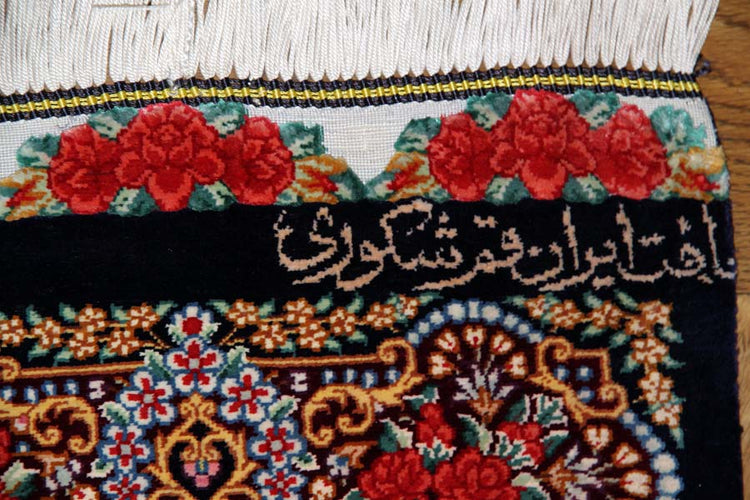 بافت ایران قم شکوری